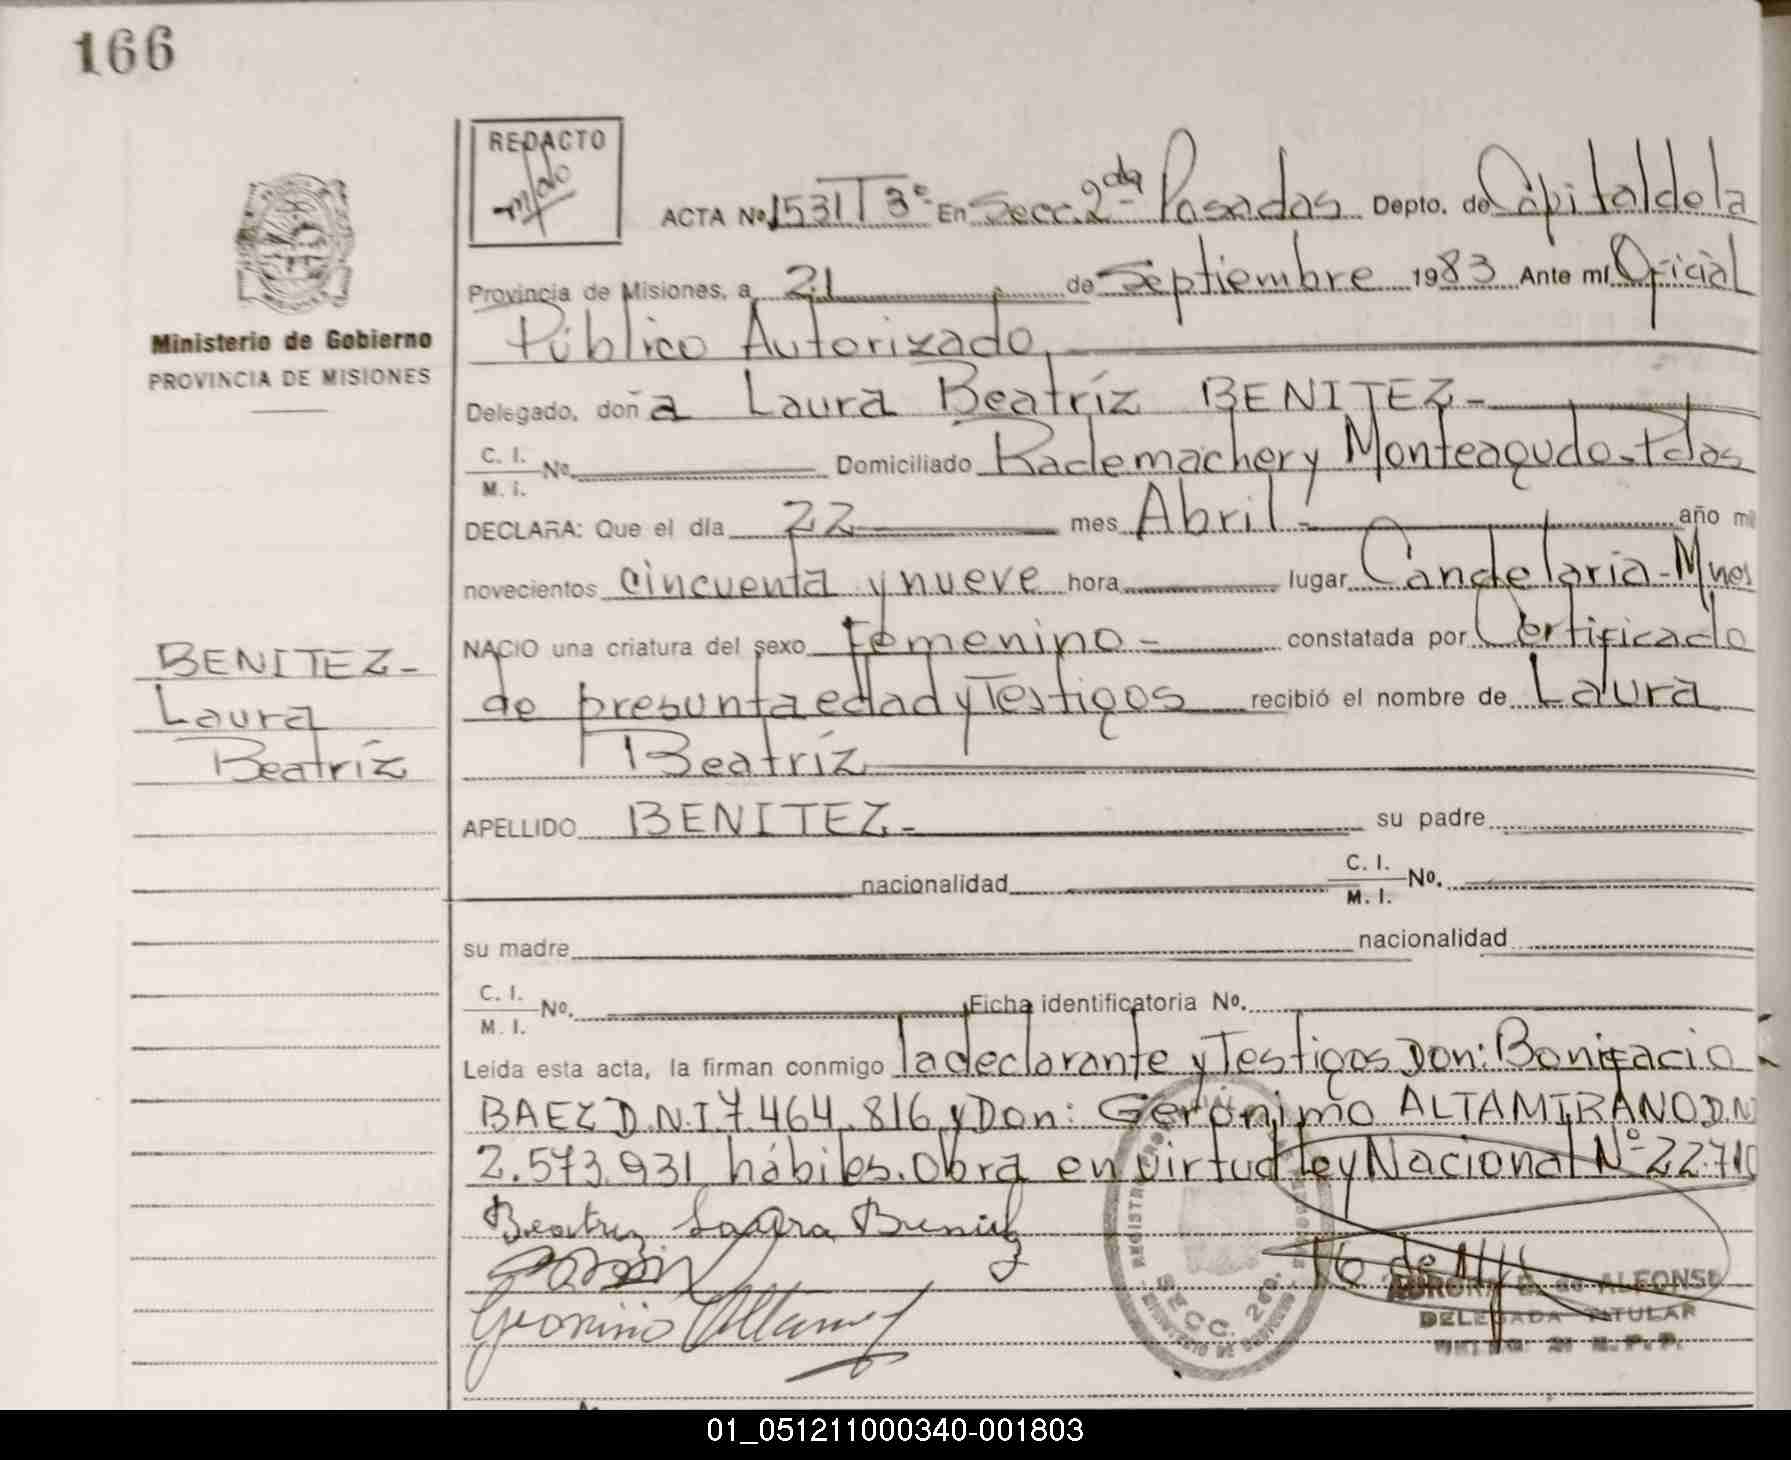 166
REDACTO
ACTA Nº 1531 T 3º En Secc. 2da Posadas Depto. de Capital de la
Provincia de Misiones, a 21 de Septiembre 1983 Ante mi Oficial
Ministerio de Gobierno
PROVINCIA DE MISIONES
Público Autorizado,
Delegado, doña Laura Beatríz BENITEZ-
C. I.
M. I. Nº Domiciliado Rademacher y Monteagudo-Pdas
DECLARA: Que el día 22 mes Abril- año mil
novecientos cincuenta y nueve hora lugar Candelaria-Mnes
NACIO una criatura del sexo femenino- constatada por Certificado
de presunta edad y Testigos recibió el nombre de Laura
Beatríz
BENITEZ-
Laura
Beatríz
APELLIDO BENITEZ- su padre
nacionalidad C. I.
M. I. Nº.
su madre nacionalidad
C. I.
M. I. Nº. Ficha identificatoria Nº.
Leida esta acta, la firman conmigo la declarante y Testigos Don: Bonifacio
BAEZ D.N.I 7.464.816 y Don: Gerónimo ALTAMIRANO D.N
2.573.931 hábiles. Obra en virtud ley Nacional Nº 22.710
Beatriz Laura Benitez
SECC. 2da.
DELEGADA TITULAR
01_051211000340-001803